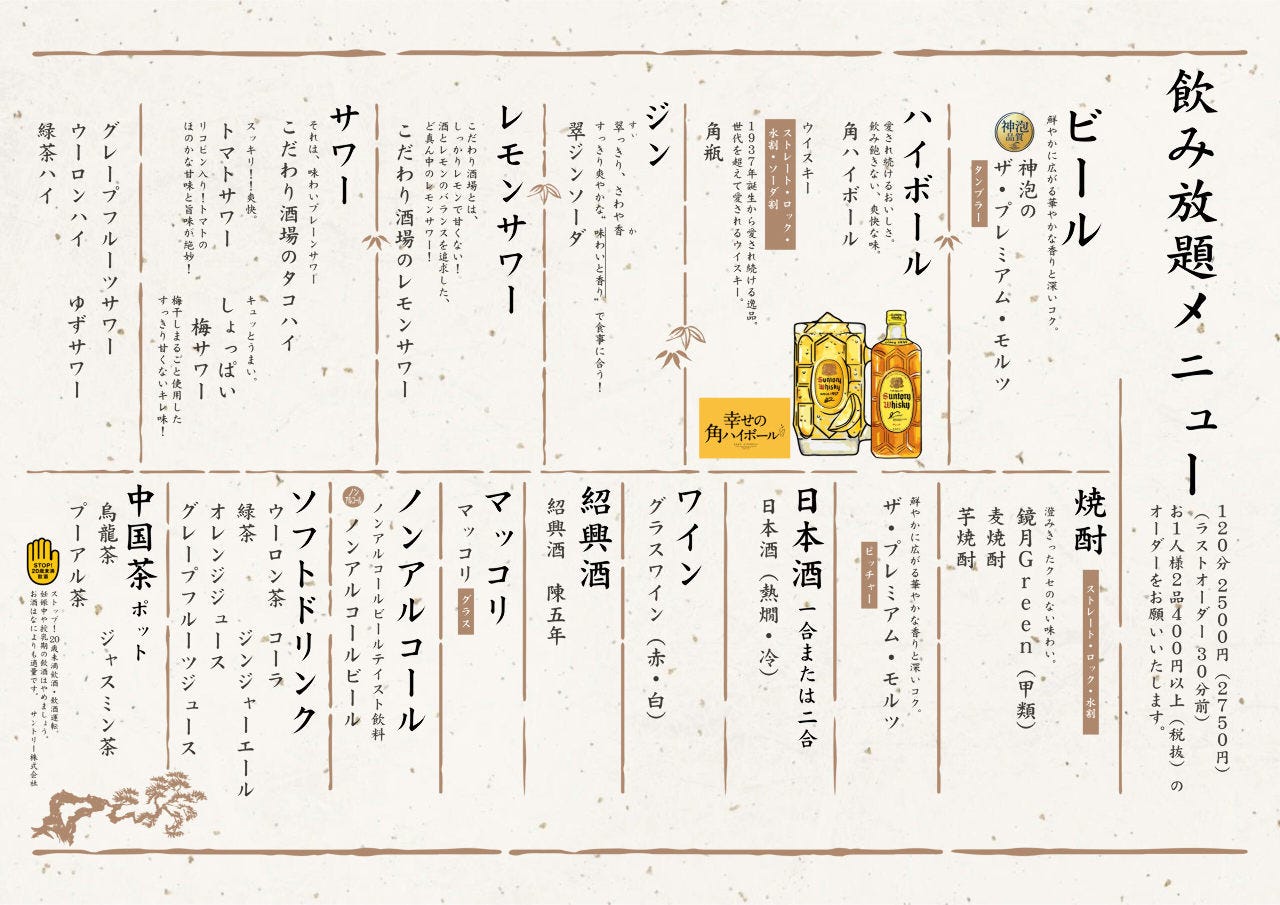 飲み放題メニュー
120分 2500円（2750円）
（ラストオーダー30分前）
お1人様2品400円以上（税抜）の
オーダーをお願いいたします。
ビール
鮮やかに広がる華やかな香りと深いコク。
神泡品質
神泡の
ザ・プレミアム・モルツ
タンブラー
ハイボール
愛され続けるおいしさ。
飲み飽きない、爽快な味。
角ハイボール
ウイスキー
ストレート・ロック・
水割・ソーダ割
1937年誕生から愛され続ける逸品。
世代を超えて愛されるウイスキー。
角瓶
Suntory
Whisky
Suntory
Whisky
幸せの
角ハイボール
ジン
すぃ か
翠っきり、さわや香
すっきり爽やかな“味わいと香り”で食事に合う！
翠ジンソーダ
レモンサワー
こだわり酒場とは、
しっかりレモンで甘くない！
酒とレモンのバランスを追求した、
ど真ん中のレモンサワー！
こだわり酒場のレモンサワー
サワー
それは、味わいプレーンサワー
こだわり酒場のタコハイ
スッキリ！！爽快。
トマトサワー
リコピン入り！トマトの
ほのかな甘味と旨味が絶妙！
キュッとうまい。
しょっぱい
梅サワー
梅干しまるごと使用した
すっきり甘くないキレ味！
グレープフルーツサワー
ウーロンハイ ゆずサワー
緑茶ハイ
焼酎
ストレート・ロック・水割
澄みきったクセのない味わい。
鏡月Green（甲類）
麦焼酎
芋焼酎
鮮やかに広がる華やかな香りと深いコク。
ザ・プレミアム・モルツ
ピッチャー
日本酒 一合または二合
日本酒（熱燗・冷）
ワイン
グラスワイン（赤・白）
紹興酒
紹興酒 陳五年
マッコリ
マッコリ グラス
ノンアルコール
ノンアルコールビールテイスト飲料
ノンアルコール
ノンアルコールビール
ソフトドリンク
ウーロン茶 コーラ
緑茶 ジンジャーエール
オレンジジュース
グレープフルーツジュース
中国茶 ポット
烏龍茶 ジャスミン茶
プーアル茶
STOP!
20歳未満
飲酒
ストップ！20歳未満飲酒・飲酒運転。
妊娠中や授乳期の飲酒はやめましょう。
お酒はなによりも適量です。 サントリー株式会社